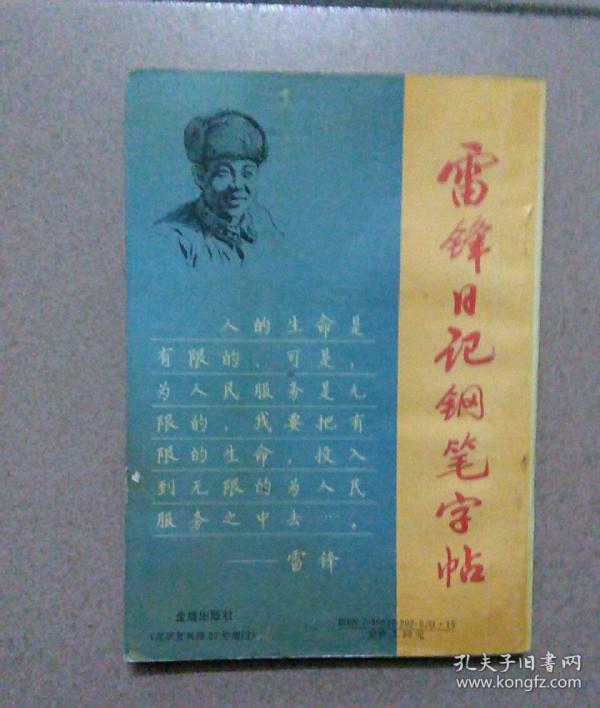 雷锋日记钢笔字帖
人的生命是
有限的，可是，
为人民服务是无
限的，我要把有
限的生命，投入
到无限的为人民
服务之中去……。
——雷锋
金盾出版社
孔夫子旧书网
www.kongfz.com